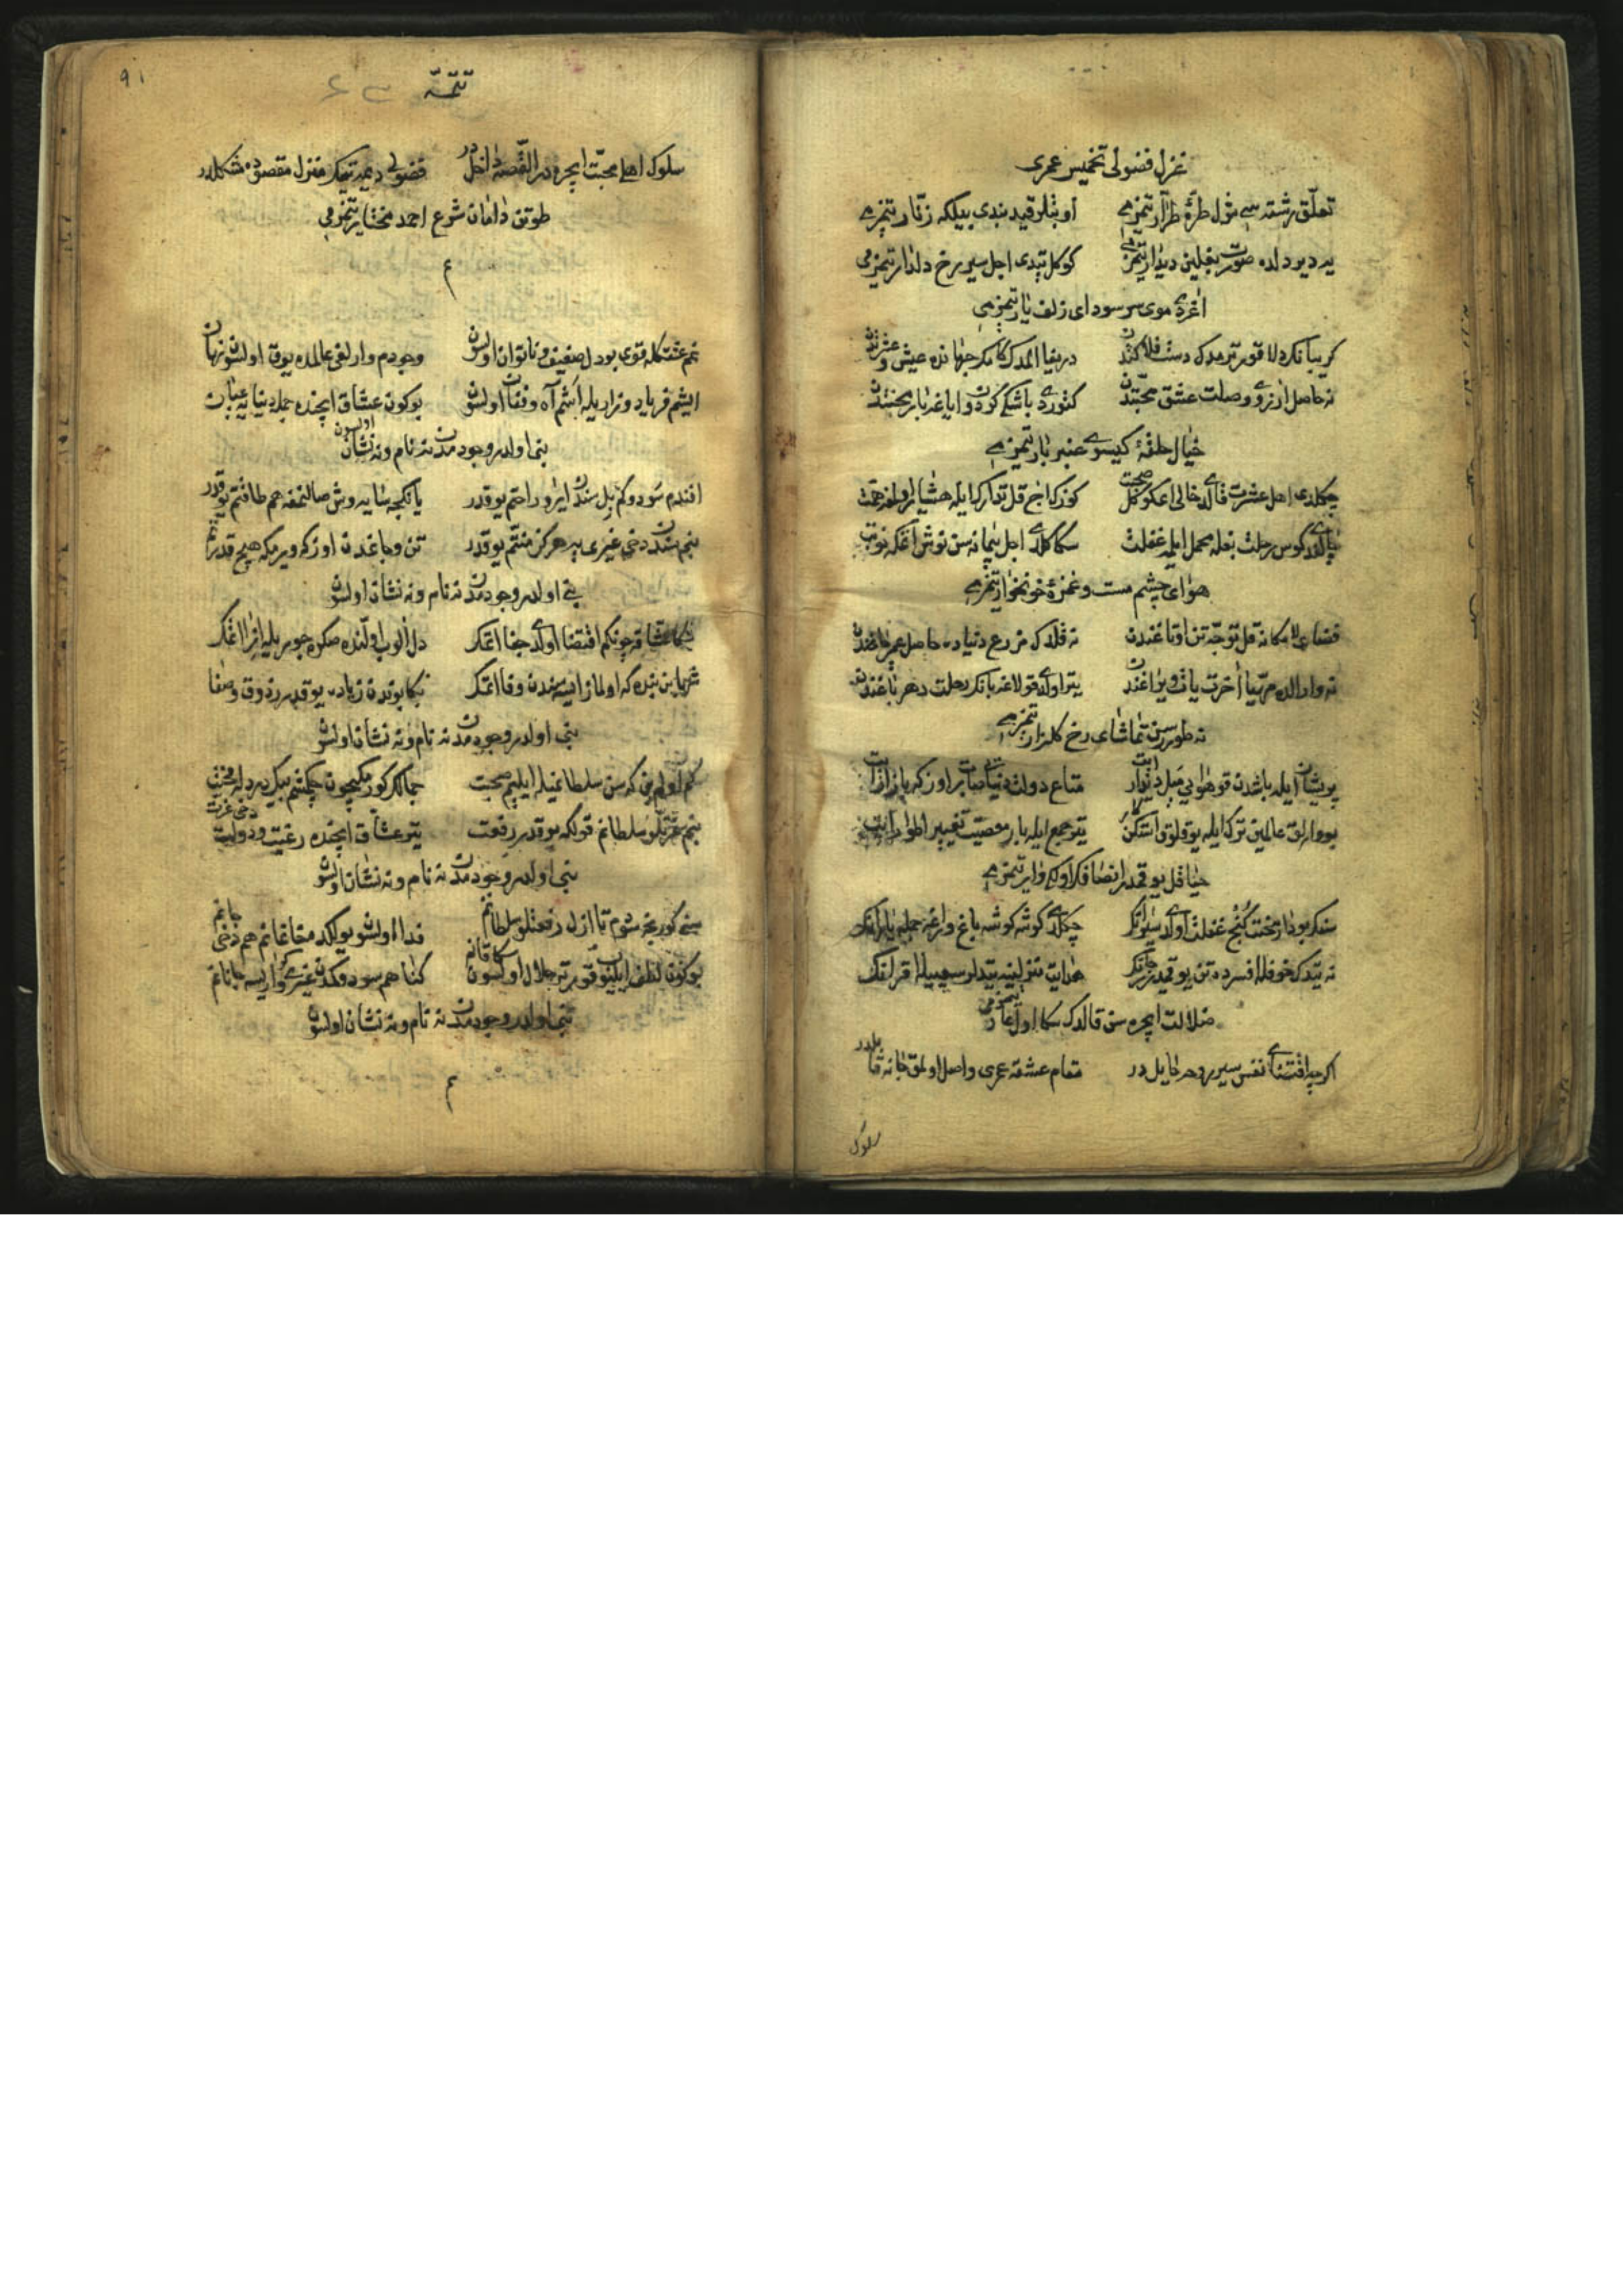 غزل فضولی تخمیس عمری
تعلّق رشته سی شول طرّهٔ طرّار یتمزمی او بتلر قید بندی بیلکه زنّار یتمزمی
یه دیر دلده صورت بغلین دیدار یتمزمی کوکل تپدی اجل سیر رخ دلدار یتمزمی
اغردی موی سر سودای زلف یار یتمزمی
کریبانکر دلا قورترمدک دست دریغا المدک کام جهانده عیش و عشرتدن
نه حاصل ارزوی وصلت عشق محبّتدن کتوردی باشکه کردون ایاغه بار محنتدن
خیال حلقهٔ کیسوی عنبر بار یتمزمی
چکلدی اهل عشرت قالدی خالی ای کوکل صحبت کوزک اچ قل تدارک ایله هشیار اول
چالندی کوس رحلت بغله محمل ایله غفلت سکا کلدی اجل پیمانه سن نوش اتمکه نوبت
هوای چشم مست و غمزهٔ خونخوار یتمزمی
فضای لامکانه قل توجّه تن نه قلدک مزرع دنیاده حاصل عمر باغندن
نه وار الده مهیّا آخرت یتر اولدی قولاغه بانک رحلت دهر باغندن
نه طورسن تماشای رخ کلزار یتمزمی
پریشان ایله باشدن قو هوایی میل دیدار ایت متاع دولت دنیایی صات بازار ایت
بو وارلق عالمین ترک ایله یوقلق یتر جمع ایله بار معصیت تغییر اطوار ایت
حیا قل یوقمیدر انصافک اولدک وار یتمزمی
سنک بو دار محنت کنج غفلت اولدی چکلدی کوشه کوشه باغ و راغه جمله یارانک
نه یتدک خوفله افسرده تن یوقمیدر جانک هدایت منزلینه یتدیلر سهیله اقرانک
ضلالت ایچره سن قالدک سکا اول عار یتمزمی
اکرچه اقتضای نفس سیر دهر مایلدر مقام عشقه عمری واصل اولمق جانه قابلدر
سلوک
٩١
تتمّه
سلوک اهل محبّت ایچره در القصّه داخلدر فضولی دیمه یتمک منزل مقصوده مشکلدر
طوتن دامان شرع احمد مختار یتمزمی
م
غم عشقکله قوی بو دل ضعیف و ناتوان اولسون وجودم وارلغی عالمده یوق اولسون نهان
ایشم فریاد و زاریله اشم آه و فغان اولسون بوکون عشاق ایچنده جمله دنیایه عیان اولسون
بنی اولدر وجودمدن نه نام و نه نشان
افندم سودوکم بیل سندن ایرو راحتم یوقدر یانکجه سایه وش صالنمغه هم طاقتم یوقدر
بنم سندن دخی غیری یه هرکز منّتم یوقدر تن و جاندن اوزکه ویرمکه هیچ قدرتم
بنی اولدر وجودمدن نه نام و نه نشان اولسون
عشاقه چونکم اقتضا اولدی جفا اتمک دل الوب اولنده صکره جوریله ازا اتمک
شها بن بنده که اولمز ایسه سندن وفا اتمک بکا بوندن زیاده یوقدر ذوق و صفا
بنی اولدر وجودمدن نه نام و نه نشان اولسون
کم اولم بن که سن سلطانمیله ایلیم صحبت جمالک کورمکیچون چکمشم بیک درد ایله محنت
بنم عزّتلو سلطانم قولکه یوقدر رفعت یتر عشاق ایچنده رغبت و دولت دخی عزت
بنی اولدر وجودمدن نه نام و نه نشان اولسون
سنی کورنجه سودم تا ازل رفعتلو سلطانم فدا اولسون یولکده هم دخی جانم
بوکون لطف ایلیوب قورتر حلال اولسون سکا قانم کناهم سودوکمدن غیری وار ایسه جانانم
بنی اولدر وجودمدن نه نام و نه نشان اولسون
م